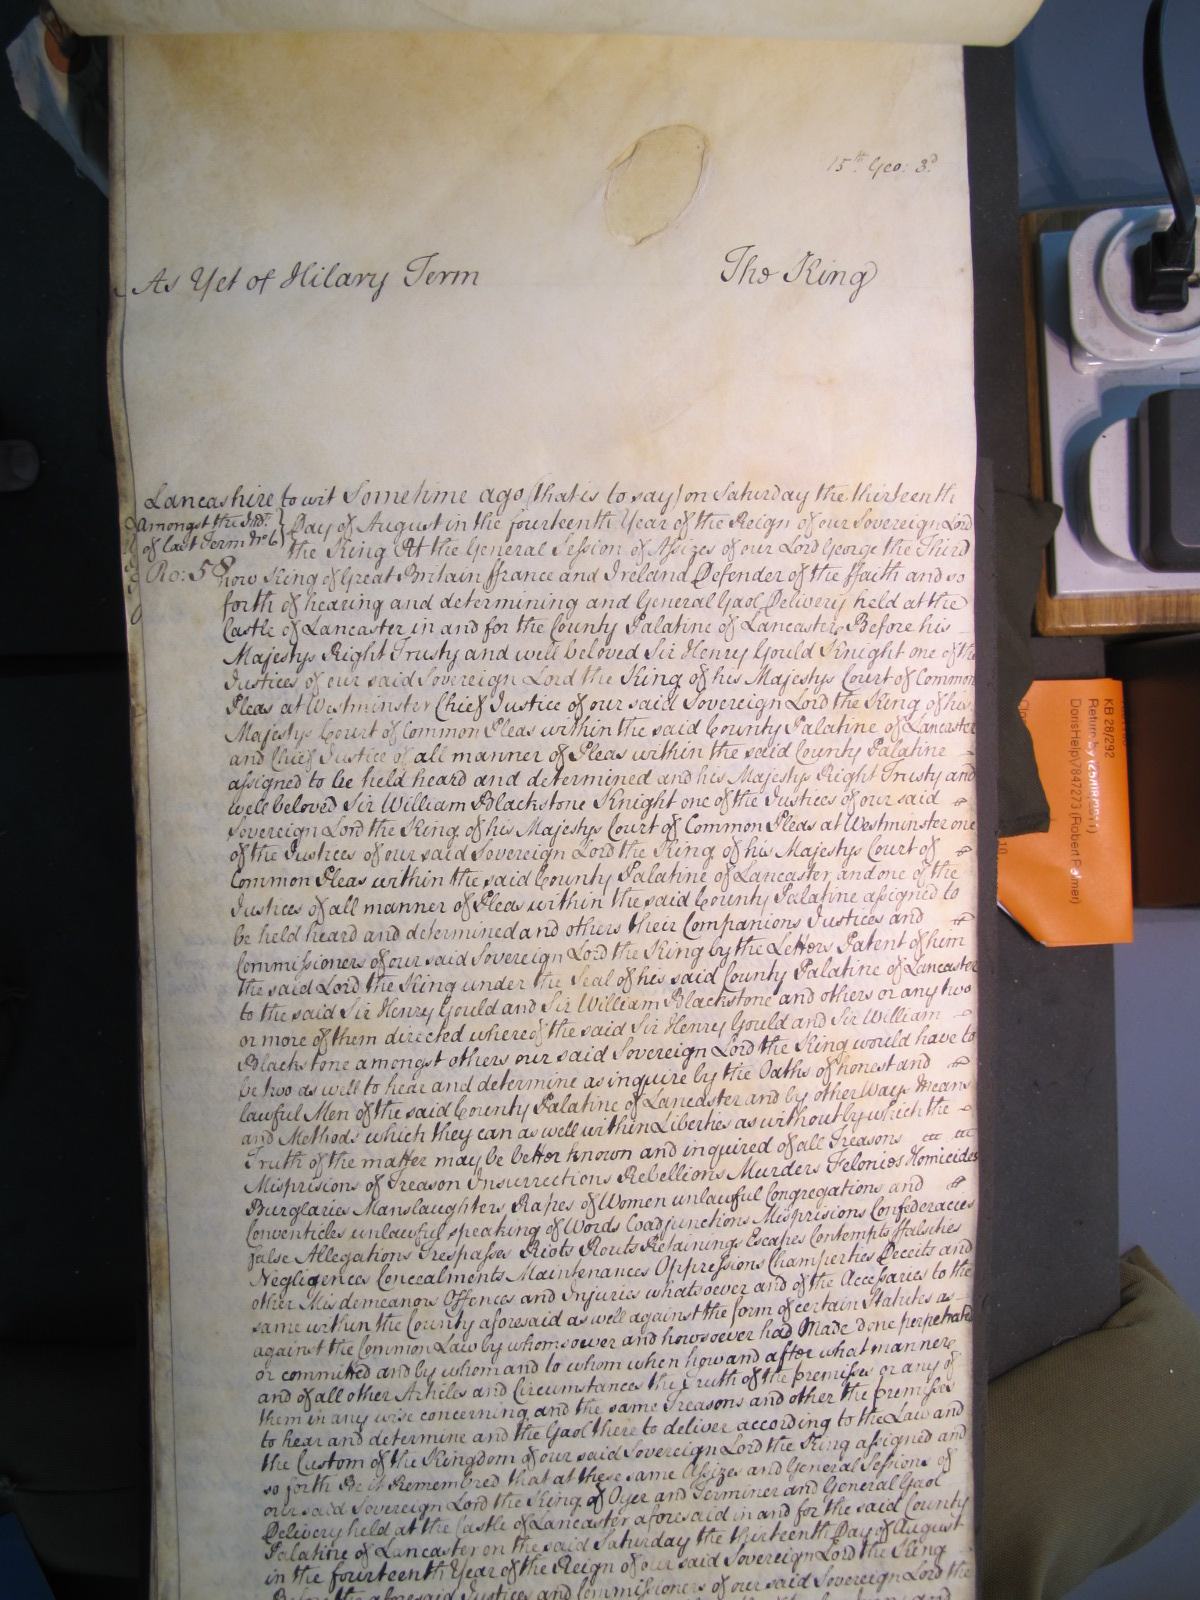 15th Geo: 3d
As Yet of Hilary Term The King
Lancashire to wit Sometime ago (that is to say) on Saturday the thirteenth
Amongst the Indts. } Day of August in the fourteenth Year of the Reign of our Sovereign Lord
of last Term No 6 } the King At the General Session of Assizes of our Lord George the Third
Ro: 58 now King of Great Britain ffrance and Ireland Defender of the ffaith and so
forth of hearing and determining and General Gaol Delivery held at the
Castle of Lancaster in and for the County Palatine of Lancaster Before his
Majestys Right Trusty and well beloved Sir Henry Gould Knight one of the
Justices of our said Sovereign Lord the King of his Majestys Court of Common
Pleas at Westminster Chief Justice of our said Sovereign Lord the King of his
Majestys Court of Common Pleas within the said County Palatine of Lancaster
and Chief Justice of all manner of Pleas within the said County Palatine
assigned to be held heard and determined and his Majestys Right Trusty and
well beloved Sir William Blackstone Knight one of the Justices of our said
Sovereign Lord the King of his Majestys Court of Common Pleas at Westminster one
of the Justices of our said Sovereign Lord the King of his Majestys Court of
Common Pleas within the said County Palatine of Lancaster and one of the
Justices of all manner of Pleas within the said County Palatine assigned to
be held heard and determined and others their Companions Justices and
Commissioners of our said Sovereign Lord the King by the Letters Patent of him
the said Lord the King under the Seal of his said County Palatine of Lancaster
to the said Sir Henry Gould and Sir William Blackstone and others or any two
or more of them directed whereof the said Sir Henry Gould and Sir William
Blackstone amongst others our said Sovereign Lord the King would have to
be two as well to hear and determine as inquire by the Oaths of honest and
lawful Men of the said County Palatine of Lancaster and by other Ways Means
and Methods which they can as well within Liberties as without by which the
Truth of the matter may be better known and inquired of all Treasons
Misprisions of Treason Insurrections Rebellions Murders Felonies Homicides
Burglaries Manslaughters Rapes of Women unlawful Congregations and
Conventicles unlawful speaking of Words Coadjunctions Misprisions Confederacies
False Allegations Trespasses Riots Routs Retainings Escapes Contempts ffalsities
Negligences Concealments Maintenances Oppressions Champerties Deceits and
other Misdemeanors Offences and Injuries whatsoever and of the Accessaries to the
same within the County aforesaid as well against the form of certain Statutes as
against the Common Law by whomsoever and howsoever had Made done perpetrated
or committed and by whom and to whom when how and after what manner
and of all other Articles and Circumstances the Truth of the premisses or any of
them in any wise concerning and the same Treasons and other the premisses
to hear and determine and the Gaol there to deliver according to the Law and
the Custom of the Kingdom of our said Sovereign Lord the King assigned and
so forth Be it Remembred that at these same Assizes and General Sessions of
our said Sovereign Lord the King of Oyer and Terminer and General Gaol
Delivery held at the Castle of Lancaster aforesaid in and for the said County
Palatine of Lancaster on the said Saturday the thirteenth Day of August
in the fourteenth Year of the Reign of our said Sovereign Lord the King
Before the aforesaid Justices and Commissioners of our said Sovereign Lord the
KB 28/292
Return by (25/08/2011)
DorisHelp\7847273 (Robert Palmer)